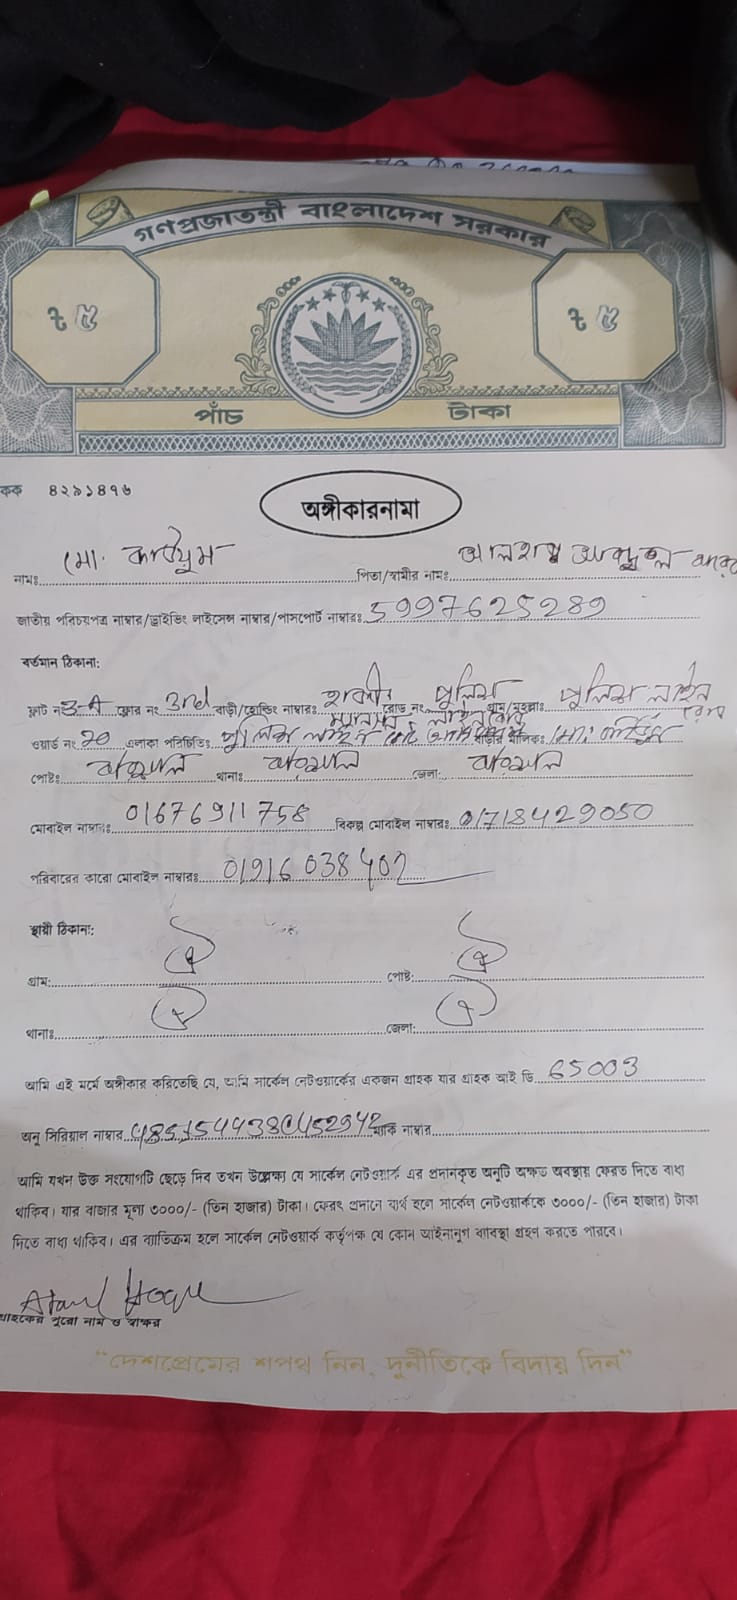 গণপ্রজাতন্ত্রী বাংলাদেশ সরকার
৳ ৫ ৳ ৫
পাঁচ টাকা
কক ৪২৯১৪৭৬
অঙ্গীকারনামা
নামঃ মো. কাইয়ুম পিতা/স্বামীর নামঃ আলহাজ্ব আবদুল
জাতীয় পরিচয়পত্র নাম্বার/ড্রাইভিং লাইসেন্স নাম্বার/পাসপোর্ট নাম্বারঃ 5997625289
বর্তমান ঠিকানা:
ফ্লাট নং 3-A ফ্লোর নং 3rd বাড়ী/হোল্ডিং নাম্বারঃ রোড নং পুলিশ লাইন রোড গ্রাম/মহল্লাঃ পুলিশ লাইন রোড
ওয়ার্ড নং 20 এলাকা পরিচিতিঃ পুলিশ লাইন রোড বাড়ীর মালিকঃ মোঃ
পোষ্টঃ বরিশাল থানাঃ বরিশাল জেলা: বরিশাল
মোবাইল নাম্বারঃ 01676911758 বিকল্প মোবাইল নাম্বারঃ 01718429050
পরিবারের কারো মোবাইল নাম্বারঃ 01916038402
স্থায়ী ঠিকানা:
গ্রাম: ঐ পোষ্ট: ঐ
থানাঃ ঐ জেলা: ঐ
আমি এই মর্মে অঙ্গীকার করিতেছি যে, আমি সার্কেল নেটওয়ার্কের একজন গ্রাহক যার গ্রাহক আই ডি 65003
অনু সিরিয়াল নাম্বার ম্যাক নাম্বার
আমি যখন উক্ত সংযোগটি ছেড়ে দিব তখন উল্লেক্ষ্য যে সার্কেল নেটওয়ার্ক এর প্রদানকৃত অনুটি অক্ষত অবস্থায় ফেরত দিতে বাধ্য
থাকিব। যার বাজার মূল্য ৩০০০/- (তিন হাজার) টাকা। ফেরৎ প্রদানে ব্যর্থ হলে সার্কেল নেটওয়ার্ককে ৩০০০/- (তিন হাজার) টাকা
দিতে বাধ্য থাকিব। এর ব্যতিক্রম হলে সার্কেল নেটওয়ার্ক কর্তৃপক্ষ যে কোন আইনানুগ ব্যবস্থা গ্রহণ করতে পারবে।
গ্রাহকের পুরো নাম ও স্বাক্ষর
"দেশপ্রেমের শপথ নিন, দুর্নীতিকে বিদায় দিন"